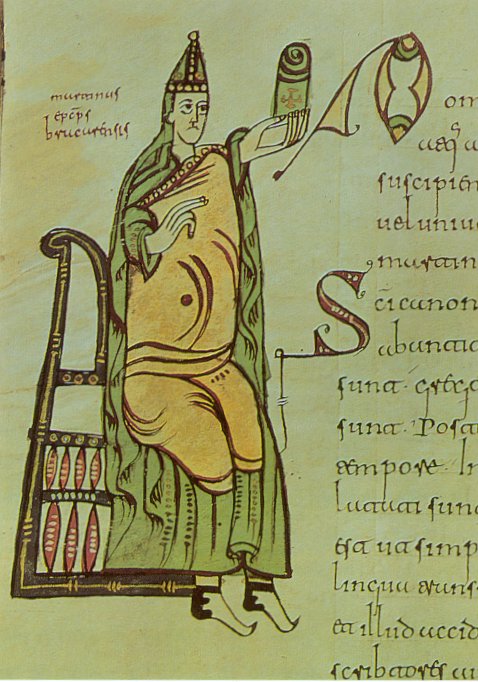 martinus
epcps
bracarensis
om
suscipien
uel uniue
martin
Sci canon
ab anti
sunt. grec
sunt. Post
tempore. In
lati sunt
est ut simp
lingua trans
et illud accid
scribtores